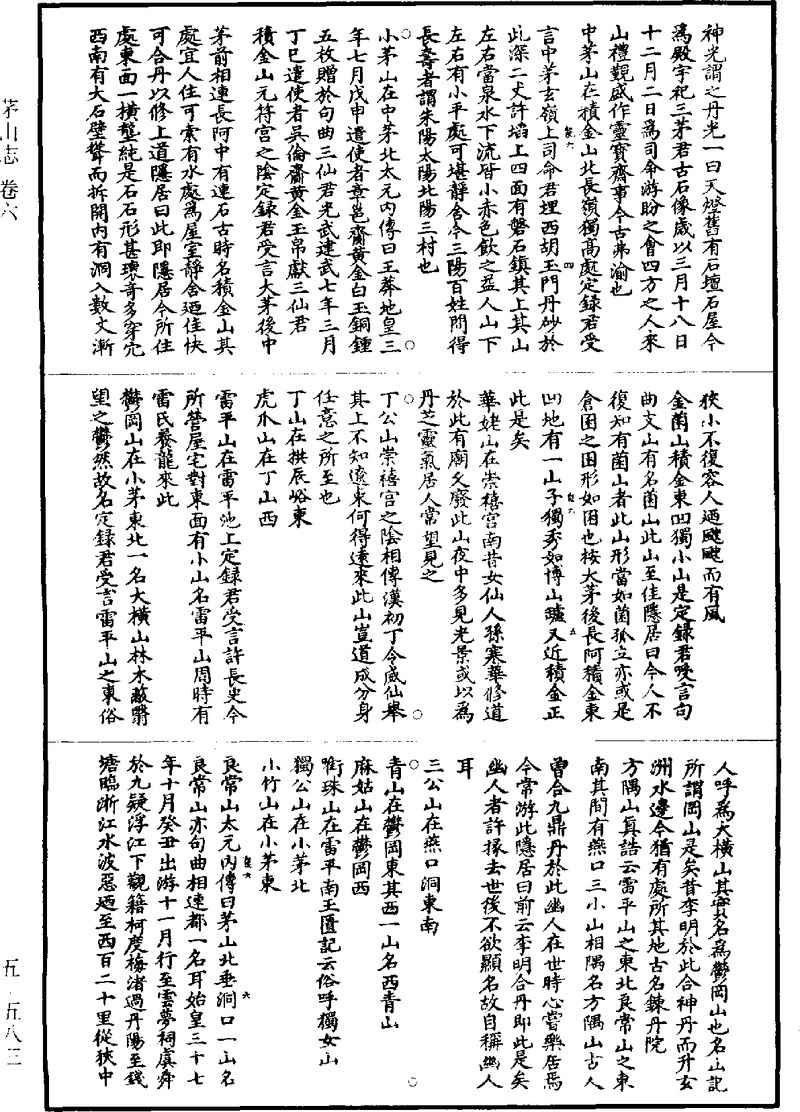 茅山志 卷六
神光謂之丹光一曰天燈舊有石壇石屋今
爲殿宇祀三茅君古石像歲以三月十八日
十二月二日爲司命游盼之會四方之人來
山禮覲盛作靈寶齋事今古弗渝也
中茅山在積金山北長嶺獨高處定録君受
言中茅玄嶺上司命君埋西胡玉門丹砂於
此深二丈許埳上四面有磐石鎮其上其山
左右當泉水下流皆小赤色飲之益人山下
左右有小平處可堪靜舍今三陽百姓間得
長壽者謂朱陽太陽北陽三村也
小茅山在中茅北太元内傳曰王莽地皇三
年七月戊申遣使者章邕齎黄金白玉銅鍾
五枚贈於句曲三仙君光武建武七年三月
丁巳遣使者吳倫齎黄金玉帛獻三仙君
積金山元符宫之陰定録君受言大茅後中
茅前相連長阿中有連石古時名積金山其
處宜人住可索有水處爲屋室靜舍迺佳快
可合丹以修上道隱居曰此即隱居今所住
處東面一橫壟純是石石形甚瓌奇多穿穴
西南有大石壁聳而拆開内有洞入數丈漸
狹小不復容人迺颼颼而有風
金菌山積金東凹獨小山是定録君受言句
曲支山有名菌山此山至佳隱居曰今人不
復知有菌山者此山形當如菌孤立亦或是
倉囷之囷形如囷也按大茅後長阿積金東
凹地有一山子獨秀如博山罏又近積金正
此是矣
華姥山在崇禧宫南昔女仙人孫寒華修道
於此有廟久廢此山夜中多見光景或以爲
丹芝靈氣居人常望見之
丁公山崇禧宫之陰相傳漢初丁令威仙舉
其上不知遼東何得遠來此山豈道成分身
任意之所至也
丁山在拱辰峪東
虎爪山在丁山西
雷平山在雷平池上定録君受言許長史今
所營屋宅對東面有小山名雷平山周時有
雷氏養龍來此
鬱岡山在小茅東北一名大橫山林木蔽翳
望之鬱然故名定録君受言雷平山之東俗
人呼爲大橫山其實名爲鬱岡山也名山記
所謂岡山是矣昔李明於此合神丹而升玄
洲水邊今猶有處所其地古名鍊丹院
方隅山真誥云雷平山之東北良常山之東
南其間有燕口三小山相隅名方隅山古人
曾合九鼎丹於此幽人在世時心嘗樂居焉
今常游此隱居曰前云李明合丹即此是矣
幽人者許掾去世後不欲顯名故自稱幽人
耳
三公山在燕口洞東南
青山在鬱岡東其西一山名西青山
麻姑山在鬱岡西
衙珠山在雷平南玉匱記云俗呼獨女山
獨公山在小茅北
小竹山在小茅東
良常山太元内傳曰茅山北垂洞口一山名
良常山亦句曲相連都一名耳始皇三十七
年十月癸丑出游十一月行至雲夢祠虞舜
於九疑浮江下觀籍柯度梅渚過丹陽至錢
塘臨浙江水波惡迺至西百二十里從狹中
五·五八三